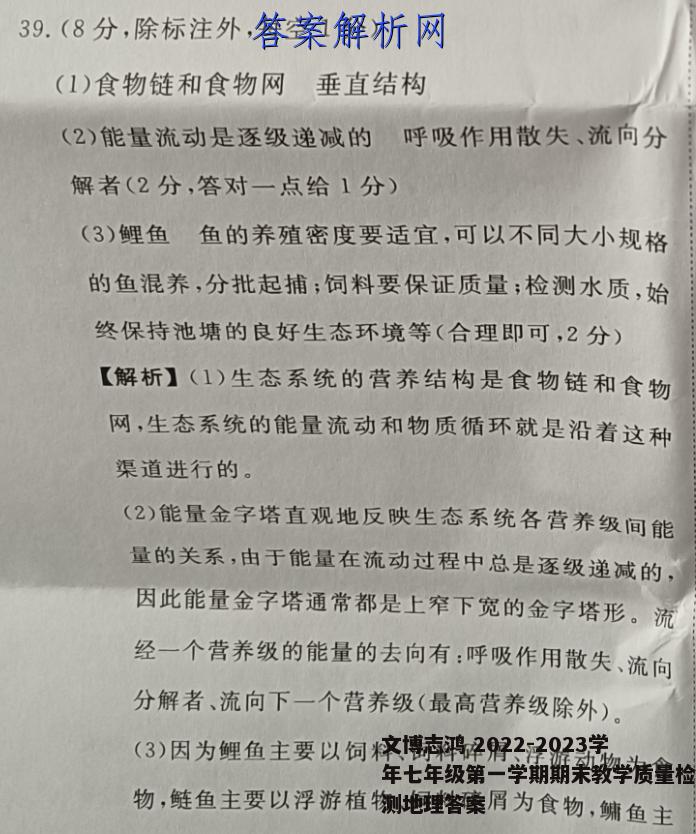 39.(8分,除标注外,
答案解析网
(1)食物链和食物网 垂直结构
(2)能量流动是逐级递减的 呼吸作用散失、流向分
解者(2分,答对一点给1分)
(3)鲤鱼 鱼的养殖密度要适宜,可以不同大小规格
的鱼混养,分批起捕;饲料要保证质量;检测水质,始
终保持池塘的良好生态环境等(合理即可,2分)
【解析】(1)生态系统的营养结构是食物链和食物
网,生态系统的能量流动和物质循环就是沿着这种
渠道进行的。
(2)能量金字塔直观地反映生态系统各营养级间能
量的关系,由于能量在流动过程中总是逐级递减的,
因此能量金字塔通常都是上窄下宽的金字塔形。流
经一个营养级的能量的去向有:呼吸作用散失、流向
分解者、流向下一个营养级(最高营养级除外)。
(3)因为鲤鱼主要以饲料
物,鲢鱼主要以浮游植物
屑为食物,鳙鱼主
文博志鸿 2022-2023学
年七年级第一学期期末教学质量检
测地理答案